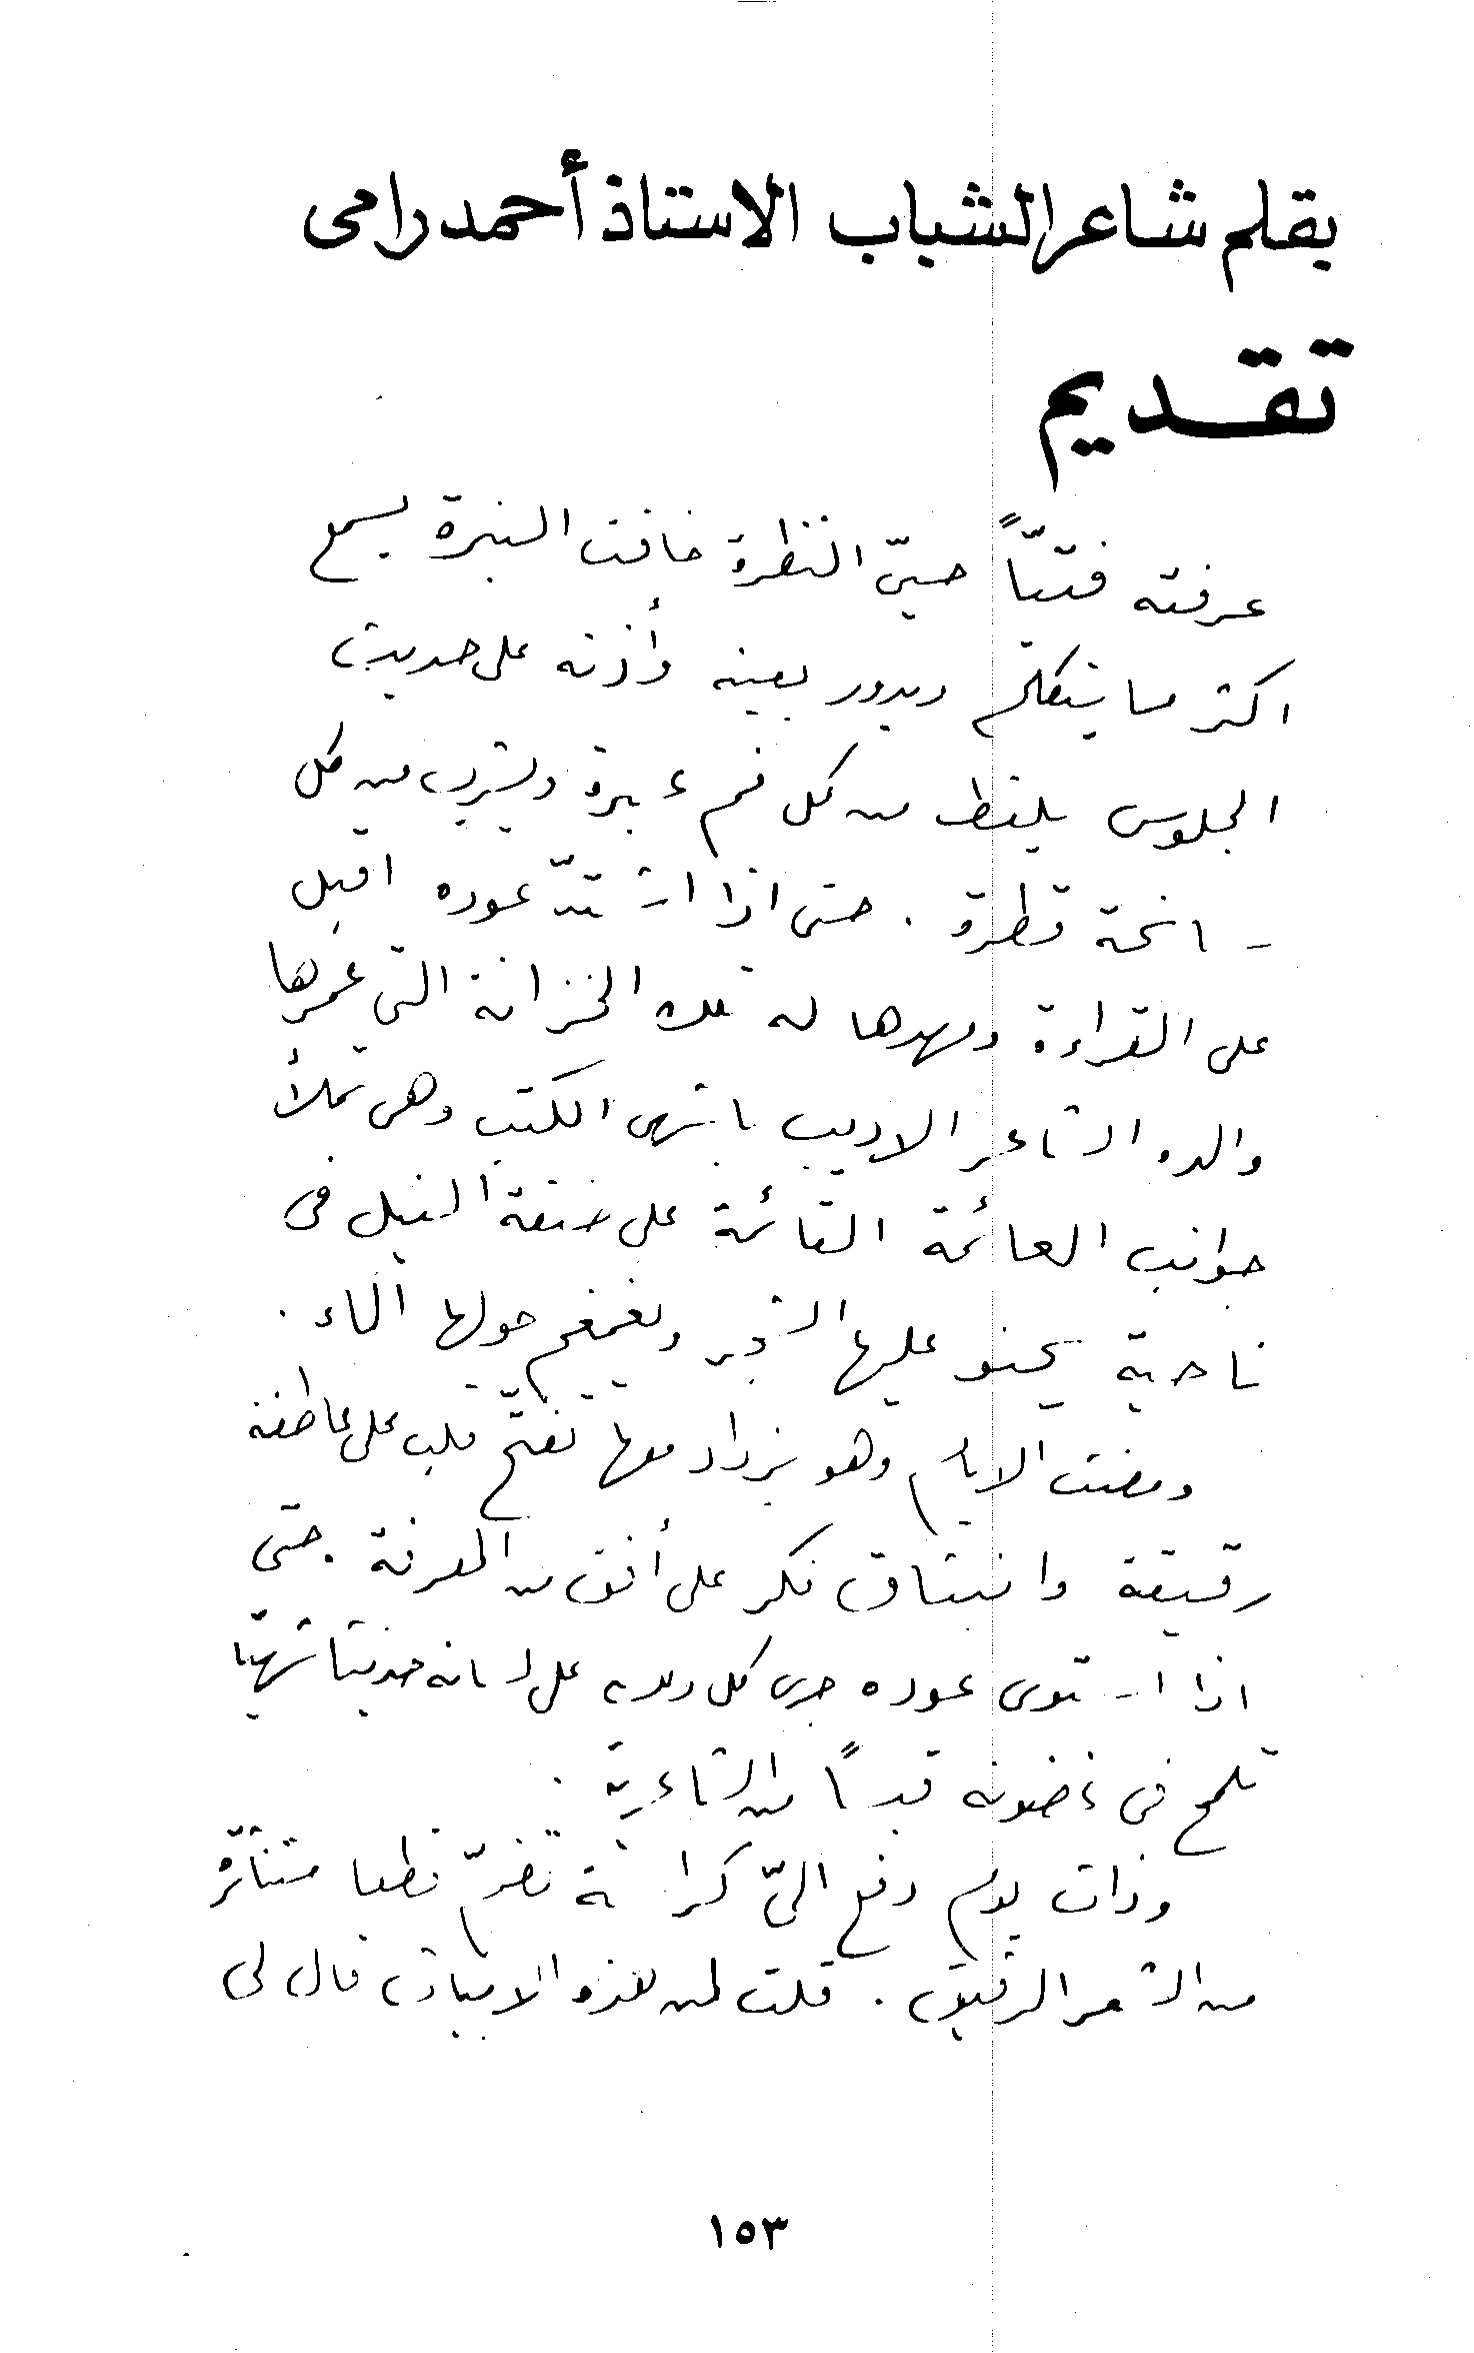 بقلم شاعر الشباب الاستاذ أحمد رامى
تقديم
عرفته فتيّاً حييّ النظرة خافت النبرة يسمع
اكثر مما يتكلم ويدور بعينه وأذنه على حديث
الجلوس يلتقط من كل فم عبرة ويشرب من كل
سانحة قطرة . حتى اذا اشتدّ عوده اقبل
على القراءة ومهدها له تلك الخزانة التي عمرها
والده الشاعر الاديب باشهى الكتب وهى تملأ
جوانب العائمة القائمة على ضفة النيل فى
ناحية يحنو عليها الشجر ويغمغم حولها الماء .
ومضت الايام وهو يزداد معها تفتّح قلب على عاطفة
رقيقة وانبثاق فكر على أفق من المعرفة . حتى
اذا استوى عوده جرى كل ولده على لسانه حديثا شهيّا
تلمح فى غضونه قبساً من الشاعرية .
وذات يوم دفع اليّ كراسة تضمّ قطعا متناثرة
من الشعر الرقيق . قلت لمن هذه الابيات قال لى
١٥٣